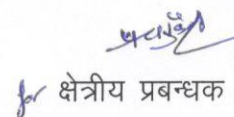 for क्षेत्रीय प्रबन्धक